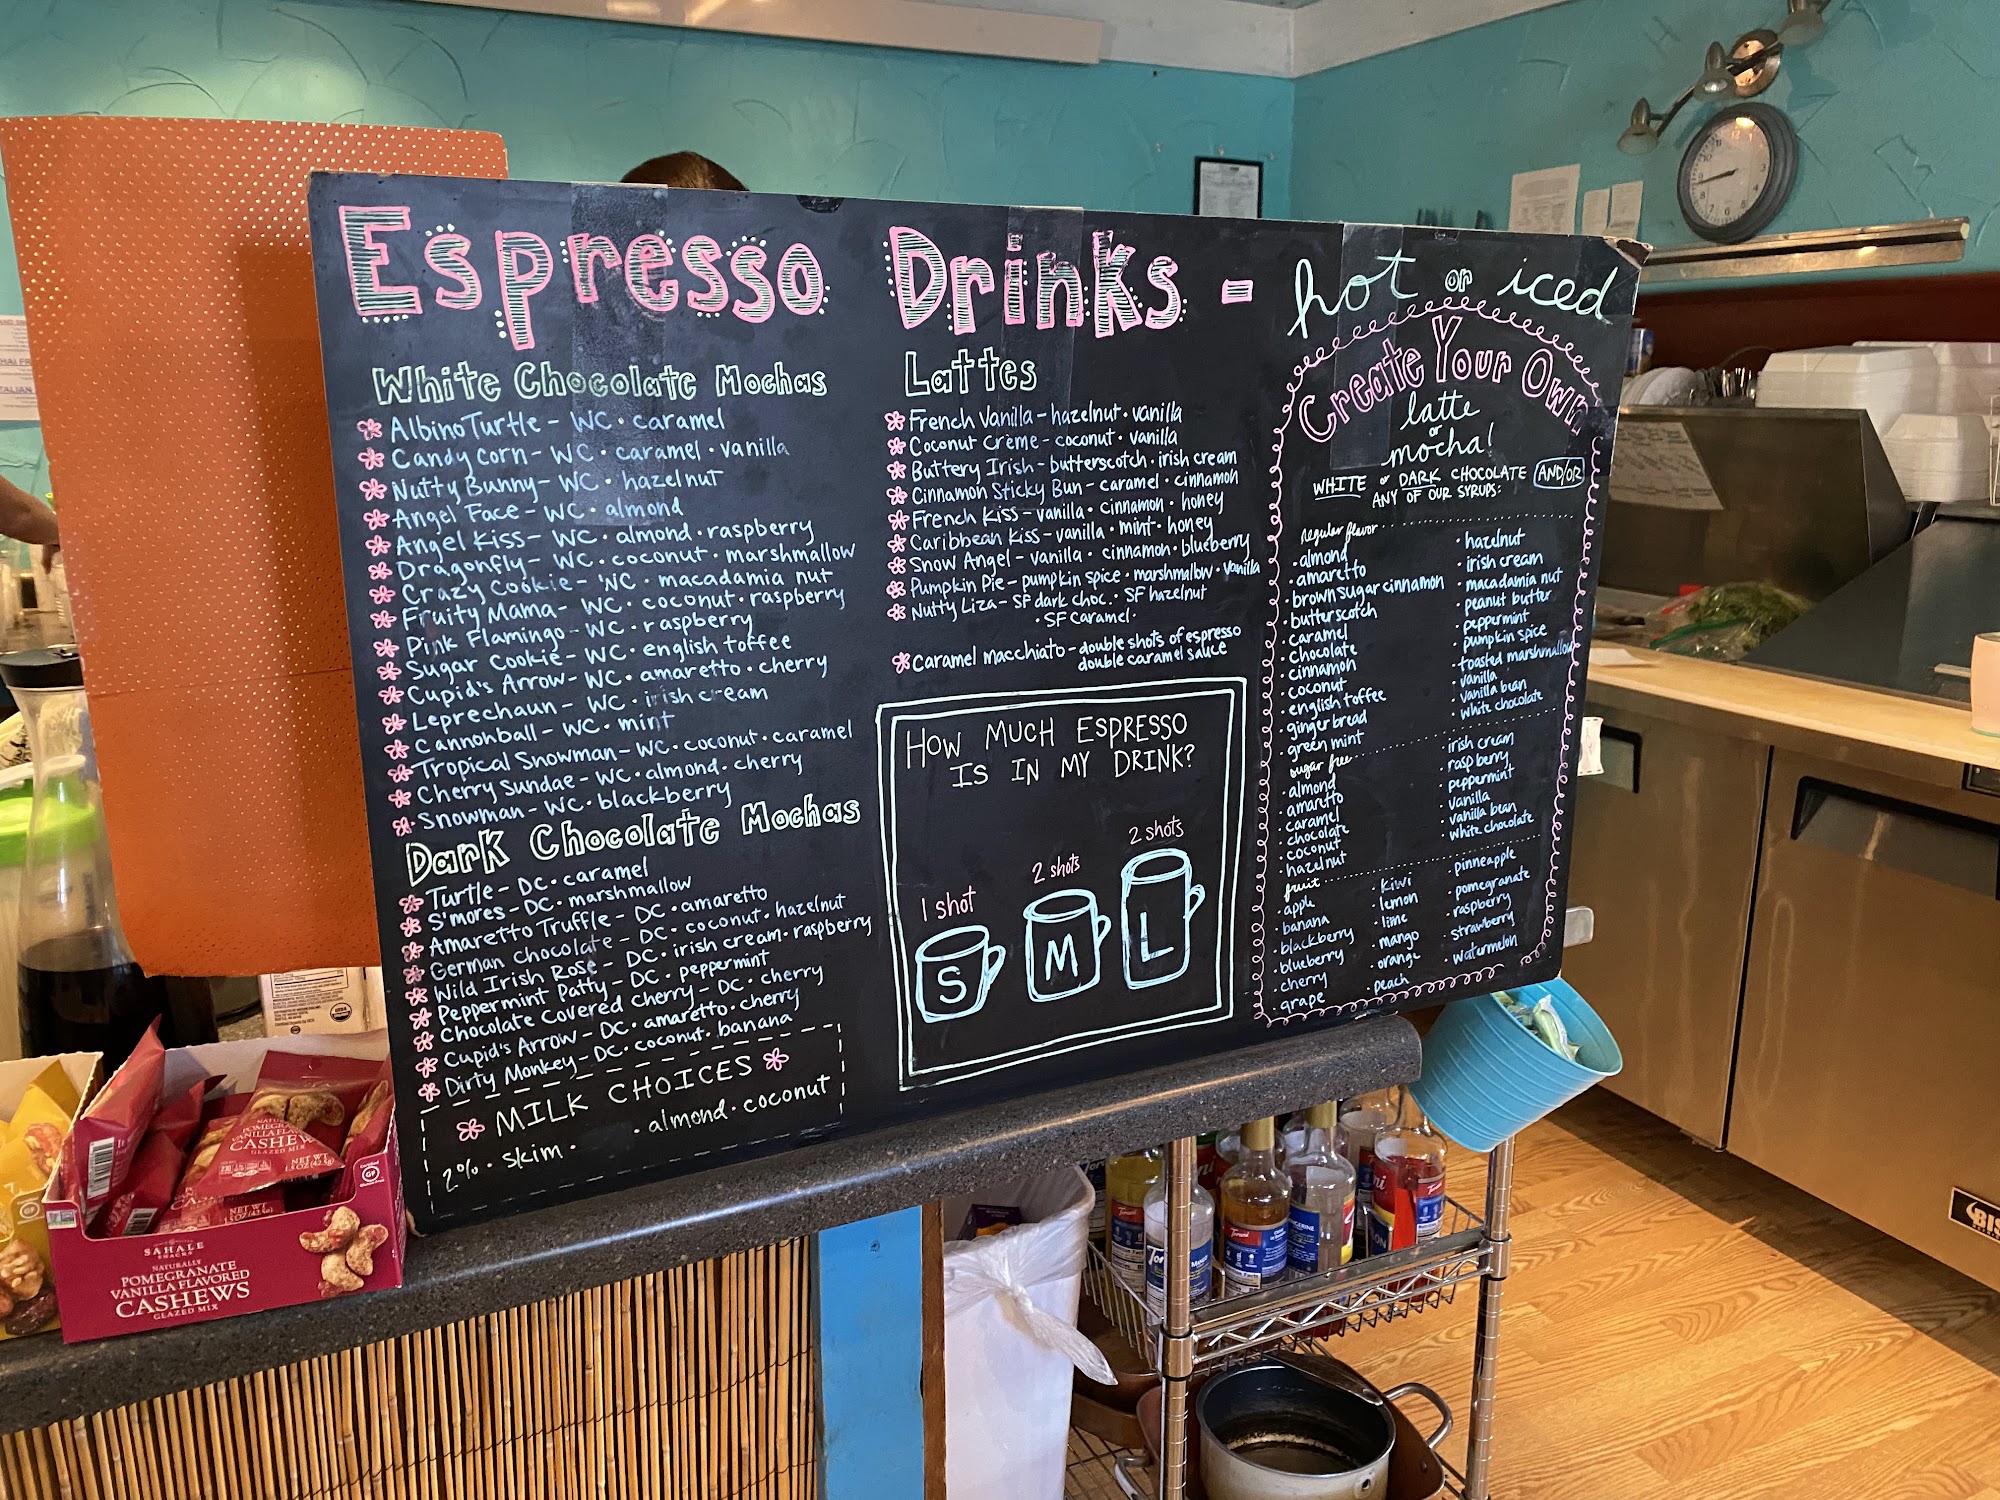 Espresso Drinks - hot or iced
White Chocolate Mochas
Albino Turtle - WC · caramel
Candy Corn - WC · caramel · vanilla
Nutty Bunny - WC · hazelnut
Angel Face - WC · almond
Angel Kiss - WC · almond · raspberry
Dragonfly - WC · coconut · marshmallow
Crazy Cookie - WC · macadamia nut
Fruity Mama - WC · coconut · raspberry
Pink Flamingo - WC · raspberry
Sugar Cookie - WC · english toffee
Cupid's Arrow - WC · amaretto · cherry
Leprechaun - WC · irish cream
Cannonball - WC · mint
Tropical Snowman - WC · coconut · caramel
Cherry Sundae - WC · almond · cherry
Snowman - WC · blackberry
Dark Chocolate Mochas
Turtle - DC · caramel
S'mores - DC · marshmallow
Amaretto Truffle - DC · amaretto
German Chocolate - DC · coconut · hazelnut
Wild Irish Rose - DC · irish cream · raspberry
Peppermint Patty - DC · peppermint
Chocolate Covered Cherry - DC · cherry
Cupid's Arrow - DC · amaretto · cherry
Dirty Monkey - DC · coconut · banana
MILK CHOICES
2% · skim · · almond · coconut
Lattes
French Vanilla - hazelnut · vanilla
Coconut Crème - coconut · vanilla
Buttery Irish - butterscotch · irish cream
Cinnamon Sticky Bun - caramel · cinnamon
French Kiss - vanilla · cinnamon · honey
Caribbean Kiss - vanilla · mint · honey
Snow Angel - vanilla · cinnamon · blueberry
Pumpkin Pie - pumpkin spice · marshmallow · vanilla
Nutty Liza - SF dark choc. · SF hazelnut
· SF caramel ·
Caramel macchiato - double shots of espresso
double caramel sauce
HOW MUCH ESPRESSO
IS IN MY DRINK?
1 shot
2 shots
2 shots
S
M
L
Create Your Own
latte
or
mocha!
WHITE or DARK CHOCOLATE AND/OR
ANY OF OUR SYRUPS:
regular flavor
· almond
· amaretto
· brown sugar cinnamon
· butterscotch
· caramel
· chocolate
· cinnamon
· coconut
· english toffee
· gingerbread
· green mint
· hazelnut
· irish cream
· macadamia nut
· peanut butter
· peppermint
· pumpkin spice
· toasted marshmallow
· vanilla
· vanilla bean
· white chocolate
sugar free
· almond
· amaretto
· caramel
· chocolate
· coconut
· hazelnut
· irish cream
· raspberry
· peppermint
· vanilla
· vanilla bean
· white chocolate
fruit
· apple
· banana
· blackberry
· blueberry
· cherry
· grape
· kiwi
· lemon
· lime
· mango
· orange
· peach
· pinneapple
· pomegranate
· raspberry
· strawberry
· watermelon
SAHALE
SNACKS
NATURALLY
POMEGRANATE
VANILLA FLAVORED
CASHEWS
GLAZED MIX
POMEGRANATE
VANILLA FLAVORED
CASHEWS
GLAZED MIX
NET WT
1.5 OZ (42.5g)
GF
Torani